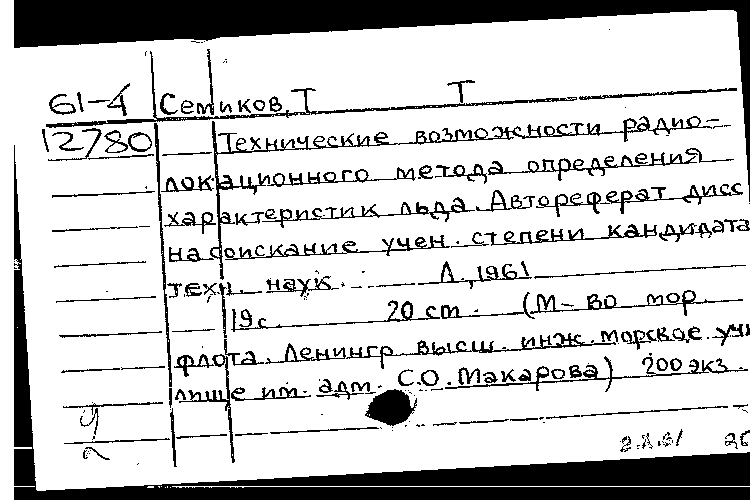 61-4 Семиков, Т Т
12780 Технические возможности радио-
локационного метода определения
характеристик льда. Автореферат дисс
на соискание учен. степени кандидата
техн. наук. Л., 1961
19с. 20 cm. (М-во мор.
флота. Ленингр высш. инж. морское учи
лище им. адм. С.О. Макарова) 200 экз.